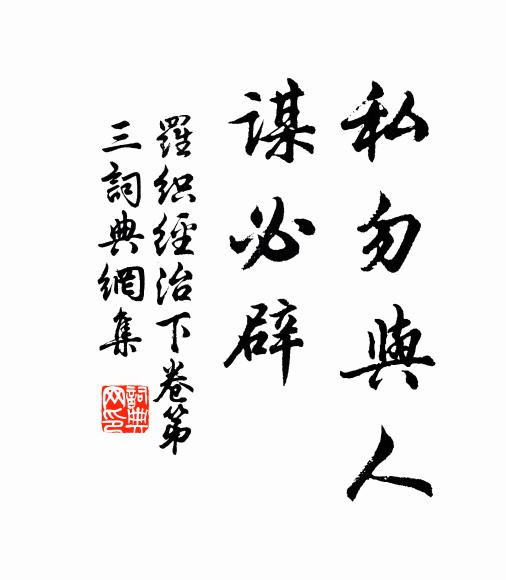 私勿與人
謀必辟
羅织經治下卷第
三詞典網集
詞典
网印